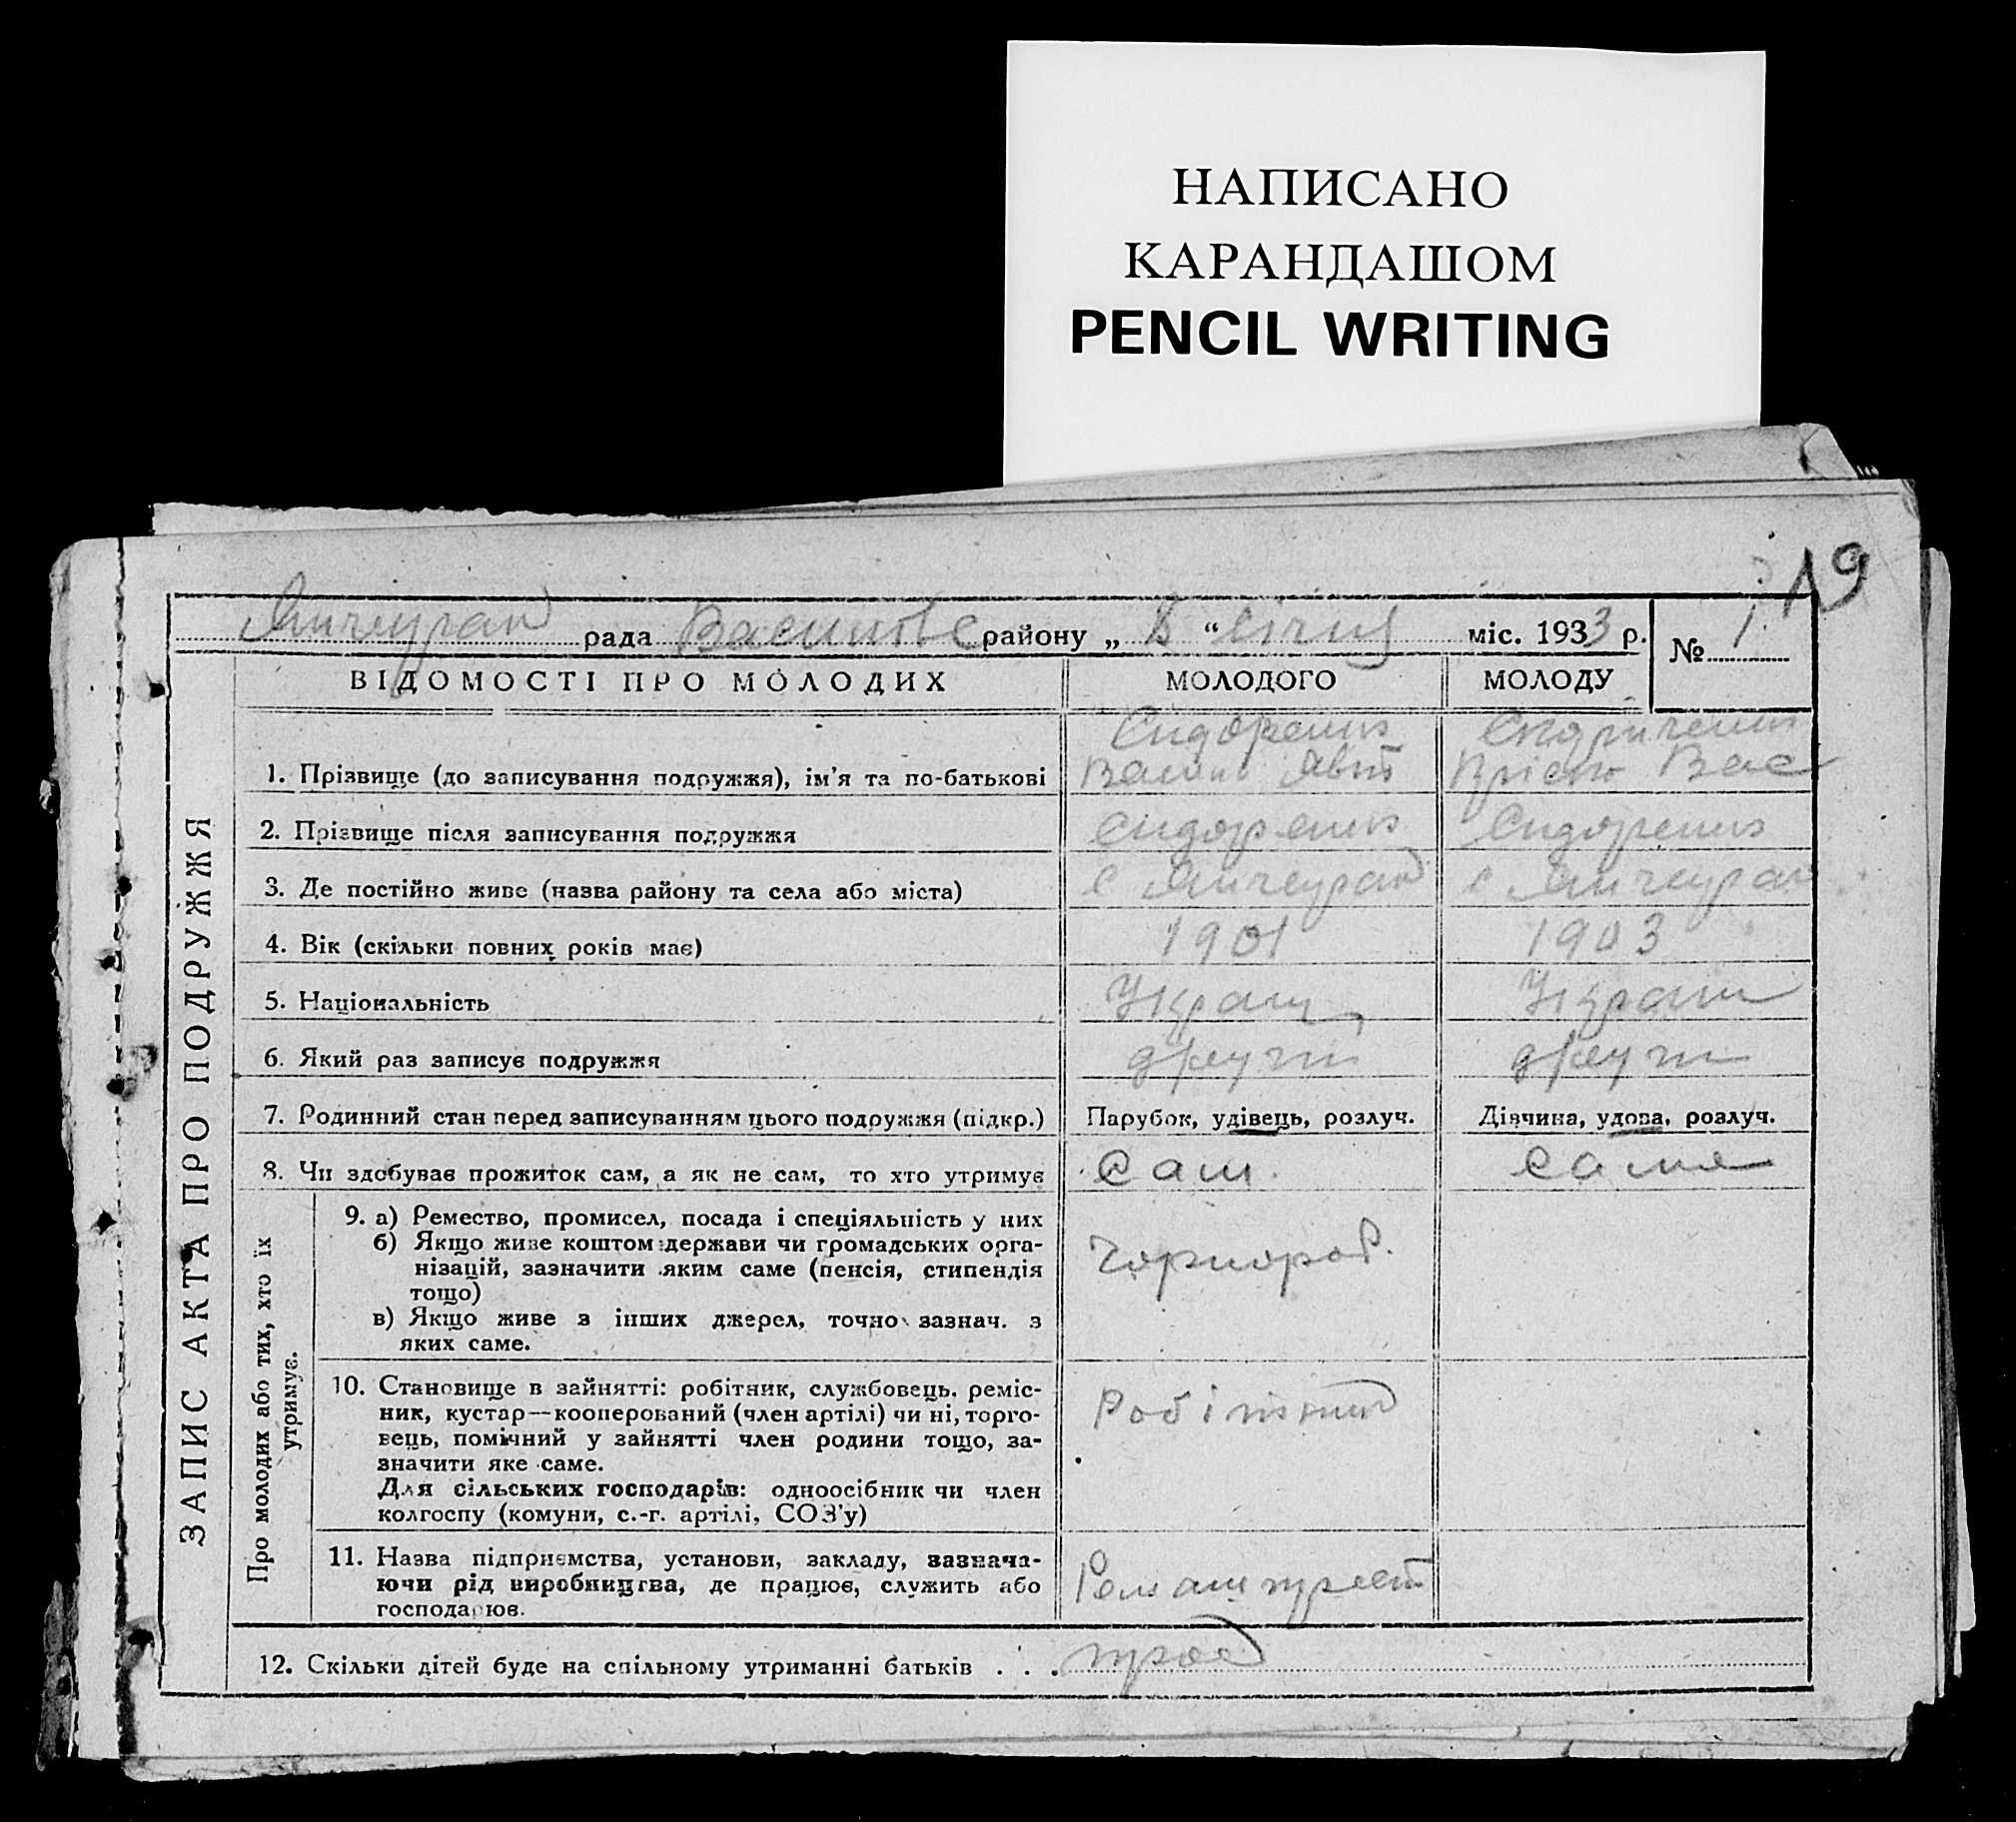 НАПИСАНО
КАРАНДАШОМ
PENCIL WRITING
19
рада Василів район у „ “ січня міс. 1933 р. № 1
ЗАПИС АКТА ПРО ПОДРУЖЖЯ
ВІДОМОСТІ ПРО МОЛОДИХ МОЛОДОГО МОЛОДУ
Сидоренко
1. Прізвище (до записування подружжя), ім’я та по-батькові Василь Вас
2. Прізвище після записування подружжя Сидоренко Сидоренко
3. Де постійно живе (назва району та села або міста) с с
4. Вік (скільки повних років має) 1901 1903
5. Національність Украін Украін
6. Який раз записує подружжя другий другий
7. Родинний стан перед записуванням цього подружжя (підкр.) Парубок, удівець, розлуч. Дівчина, удова, розлуч.
8. Чи здобуває прожиток сам, а як не сам, то хто утримує Сам Сама
Про молодих або тих, хто їх утримує.
9. а) Ремество, промисел, посада і спеціяльність у них
б) Якщо живе коштом держави чи громадських орга-
нізацій, зазначити яким саме (пенсія, стипендія
тощо)
в) Якщо живе з інших джерел, точно зазнач. з
яких саме.
Чорнороб.
10. Становище в зайнятті: робітник, службовець, реміс-
ник, кустар—кооперований (член артілі) чи ні, торго-
вець, помічний у зайнятті член родини тощо, за-
значити яке саме.
Для сільських господарів: одноосібник чи член
колгоспу (комуни, с.-г. артілі, СОЗ’у)
Робітник
11. Назва підприємства, установи, закладу, зазнача-
ючи рід виробництва, де працює, служить або
господарює.
12. Скільки дітей буде на спільному утриманні батьків . . . троє